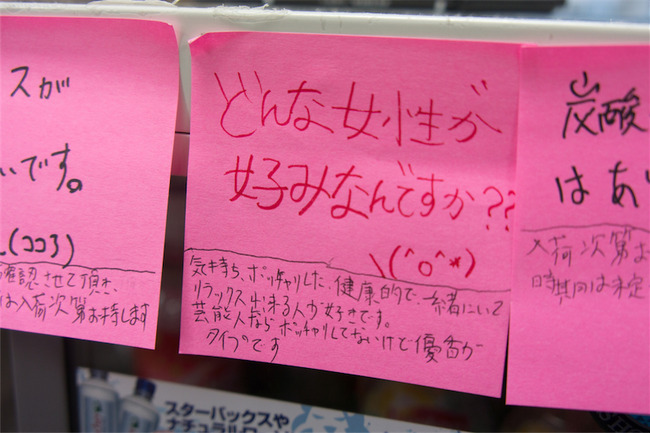 スが
いです。
(ココ3)
確認させて頂き、
は入荷次第お持します
どんな女性が
好みなんですか??
\(^o^*)
気持ち、ポッチャリした、健康的で、一緒にいて
リラックス出来る人が好きです。
芸能人なら ポッチャリしてないけど優香が
タイプです
炭酸
はあ
入荷次第お
時期は未定
スターバックスや
ナチュラルロー